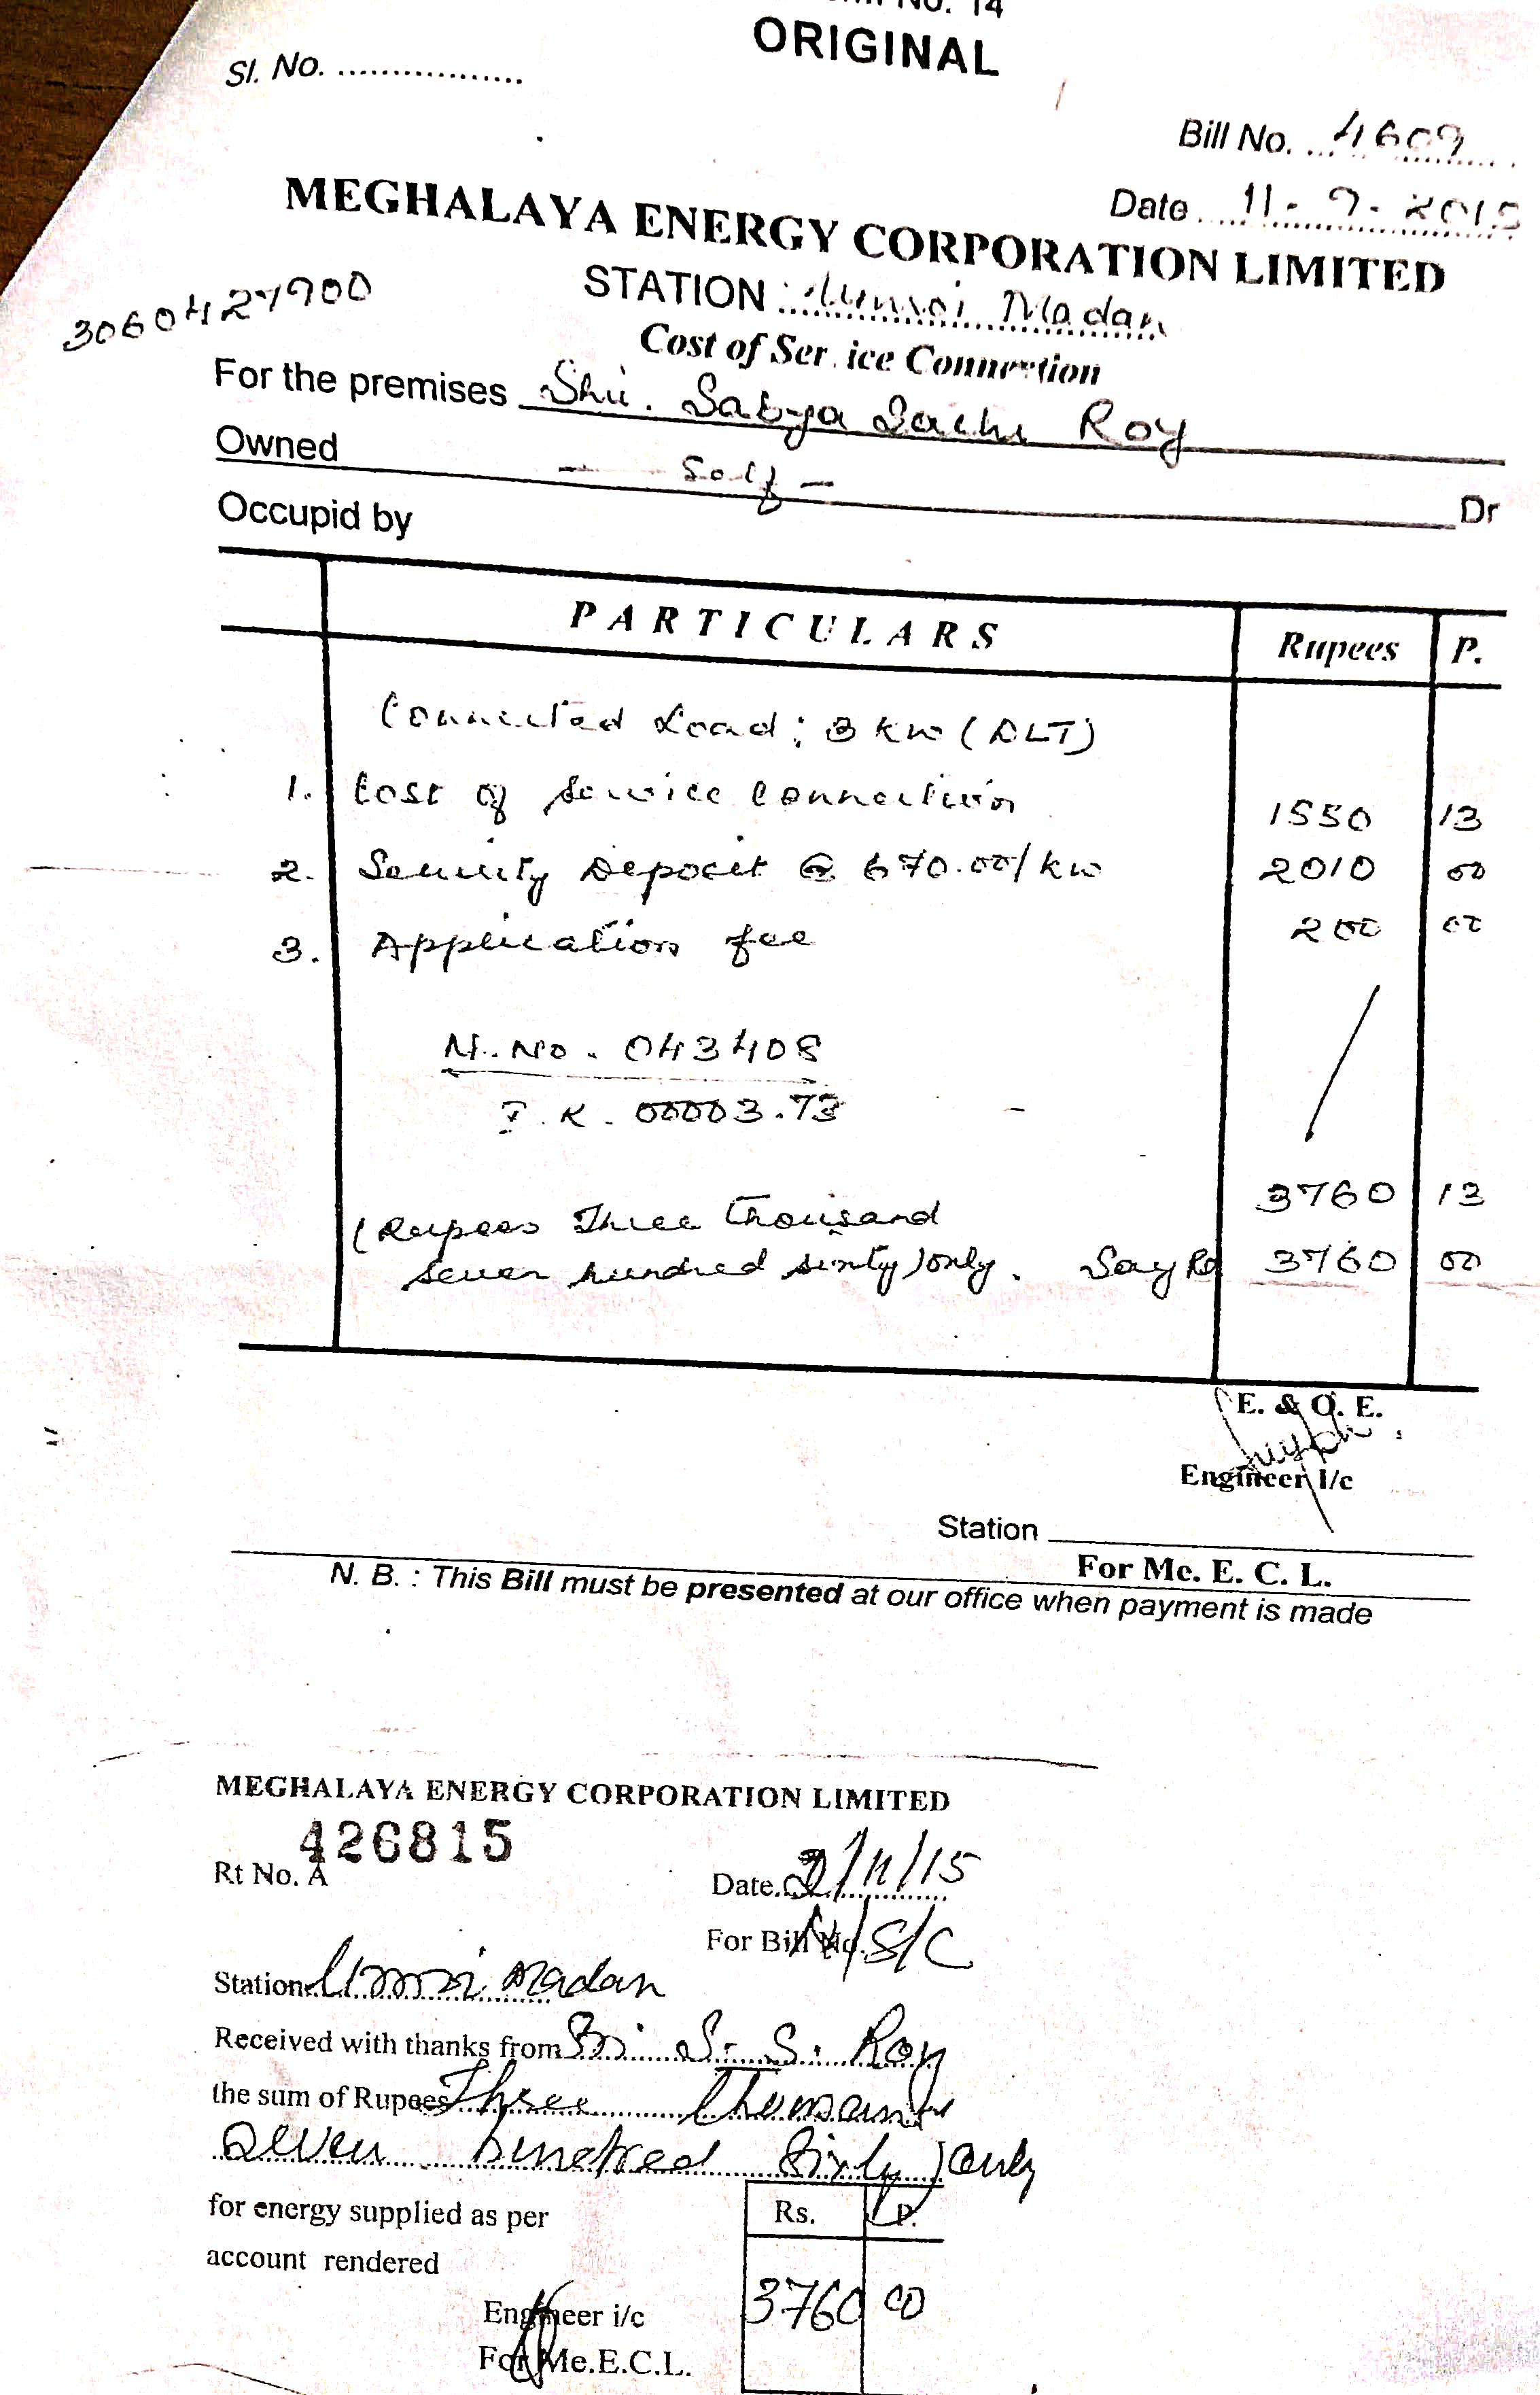 No. 14
ORIGINAL
Sl. No. ..................
Bill No. 4609
Date 11-9-2015
MEGHALAYA ENERGY CORPORATION LIMITED
STATION : Umroi Madan
30604427900
Cost of Ser. ice Connection
For the premises Shri. Sabya Sachi Roy
Owned
- Self -
Occupid by Dr
PARTICULARS Rupees P.
Connected Load: 3 KW (DLT)
1. Cost of service connection 1550 13
2. Security Deposit @ 670.00/KW 2010 00
3. Application fee 200 00
M.No. 043408
I.R. 00003.73
3760 13
(Rupees Three thousand
seven hundred sixty) only. Say Rs 3760 00
E. & O. E.
Engineer I/c
Station
For Me. E. C. L.
N. B. : This Bill must be presented at our office when payment is made
MEGHALAYA ENERGY CORPORATION LIMITED
Rt No. A 426815
Date 2/11/15
For Bill No. S/C
Station Umroi Madan
Received with thanks from Sri S. S. Roy
the sum of Rupees Three thousand
Seven hundred Sixty) only
for energy supplied as per Rs. P.
account rendered
3760 00
Engineer i/c
For Me.E.C.L.